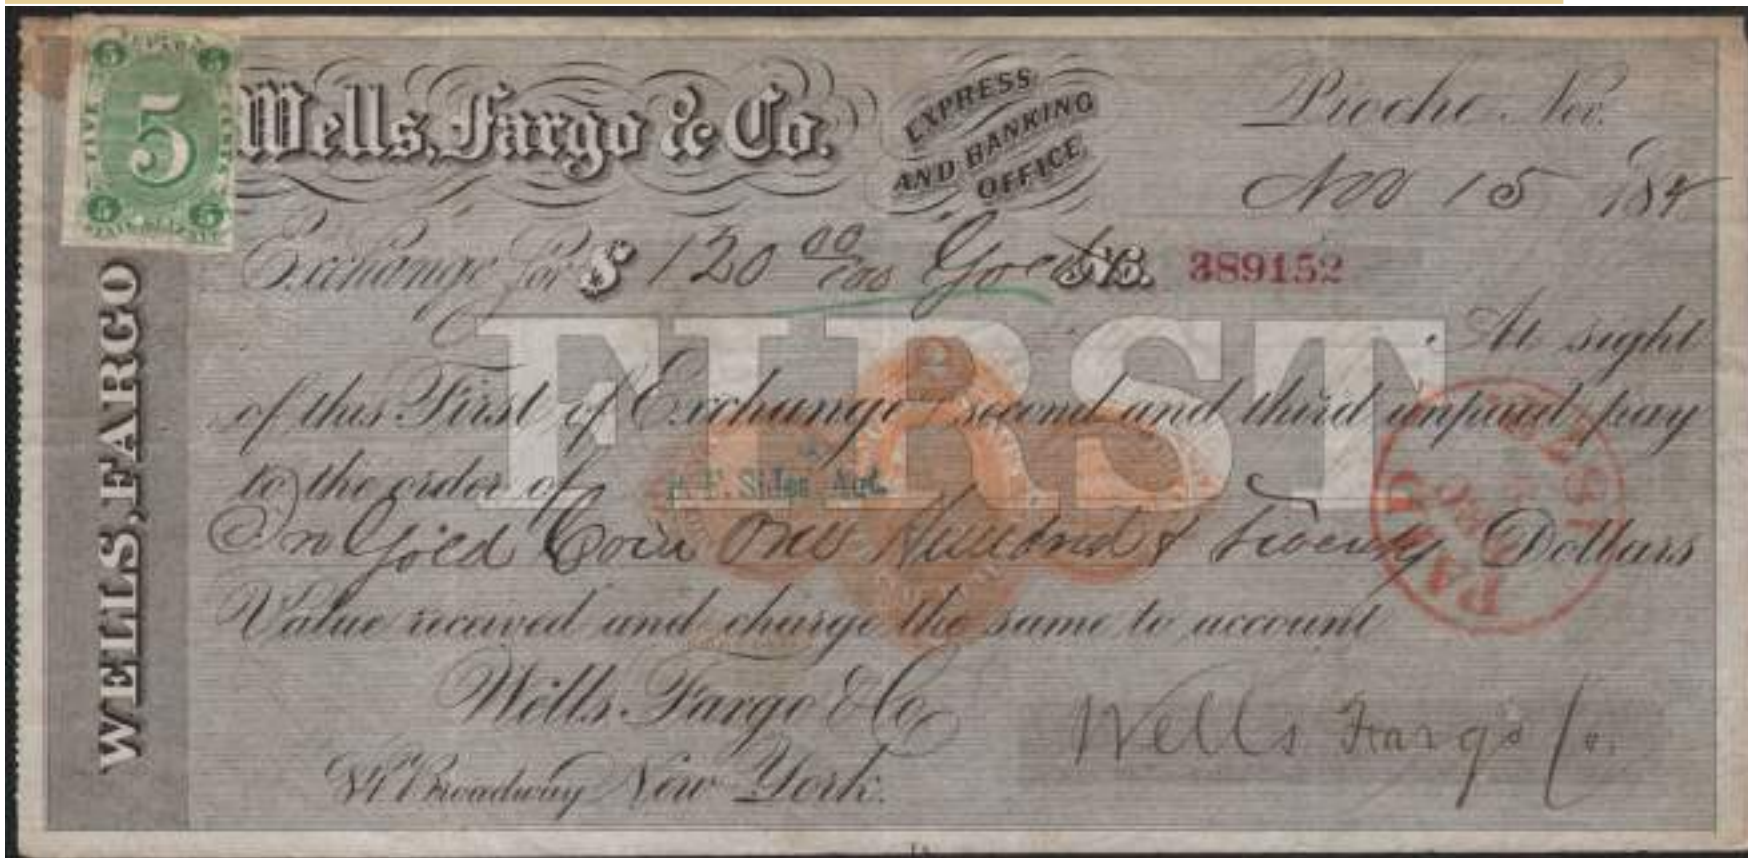 5 5
5
5 5
FIVE CENTS
Wells, Fargo & Co.
EXPRESS
AND BANKING
OFFICE.
Pioche Nev.
Nov 15 187
Exchange for $ 120 00 Gold No. 389152
FIRST
At sight
of this First of Exchange second and third unpaid pay
to the order of
In Gold Coin One Hundred & Twenty Dollars
Value received and charge the same to account
Wells, Fargo & Co
84 Broadway New York.
Wells Fargo Co.
WELLS, FARGO
PAID